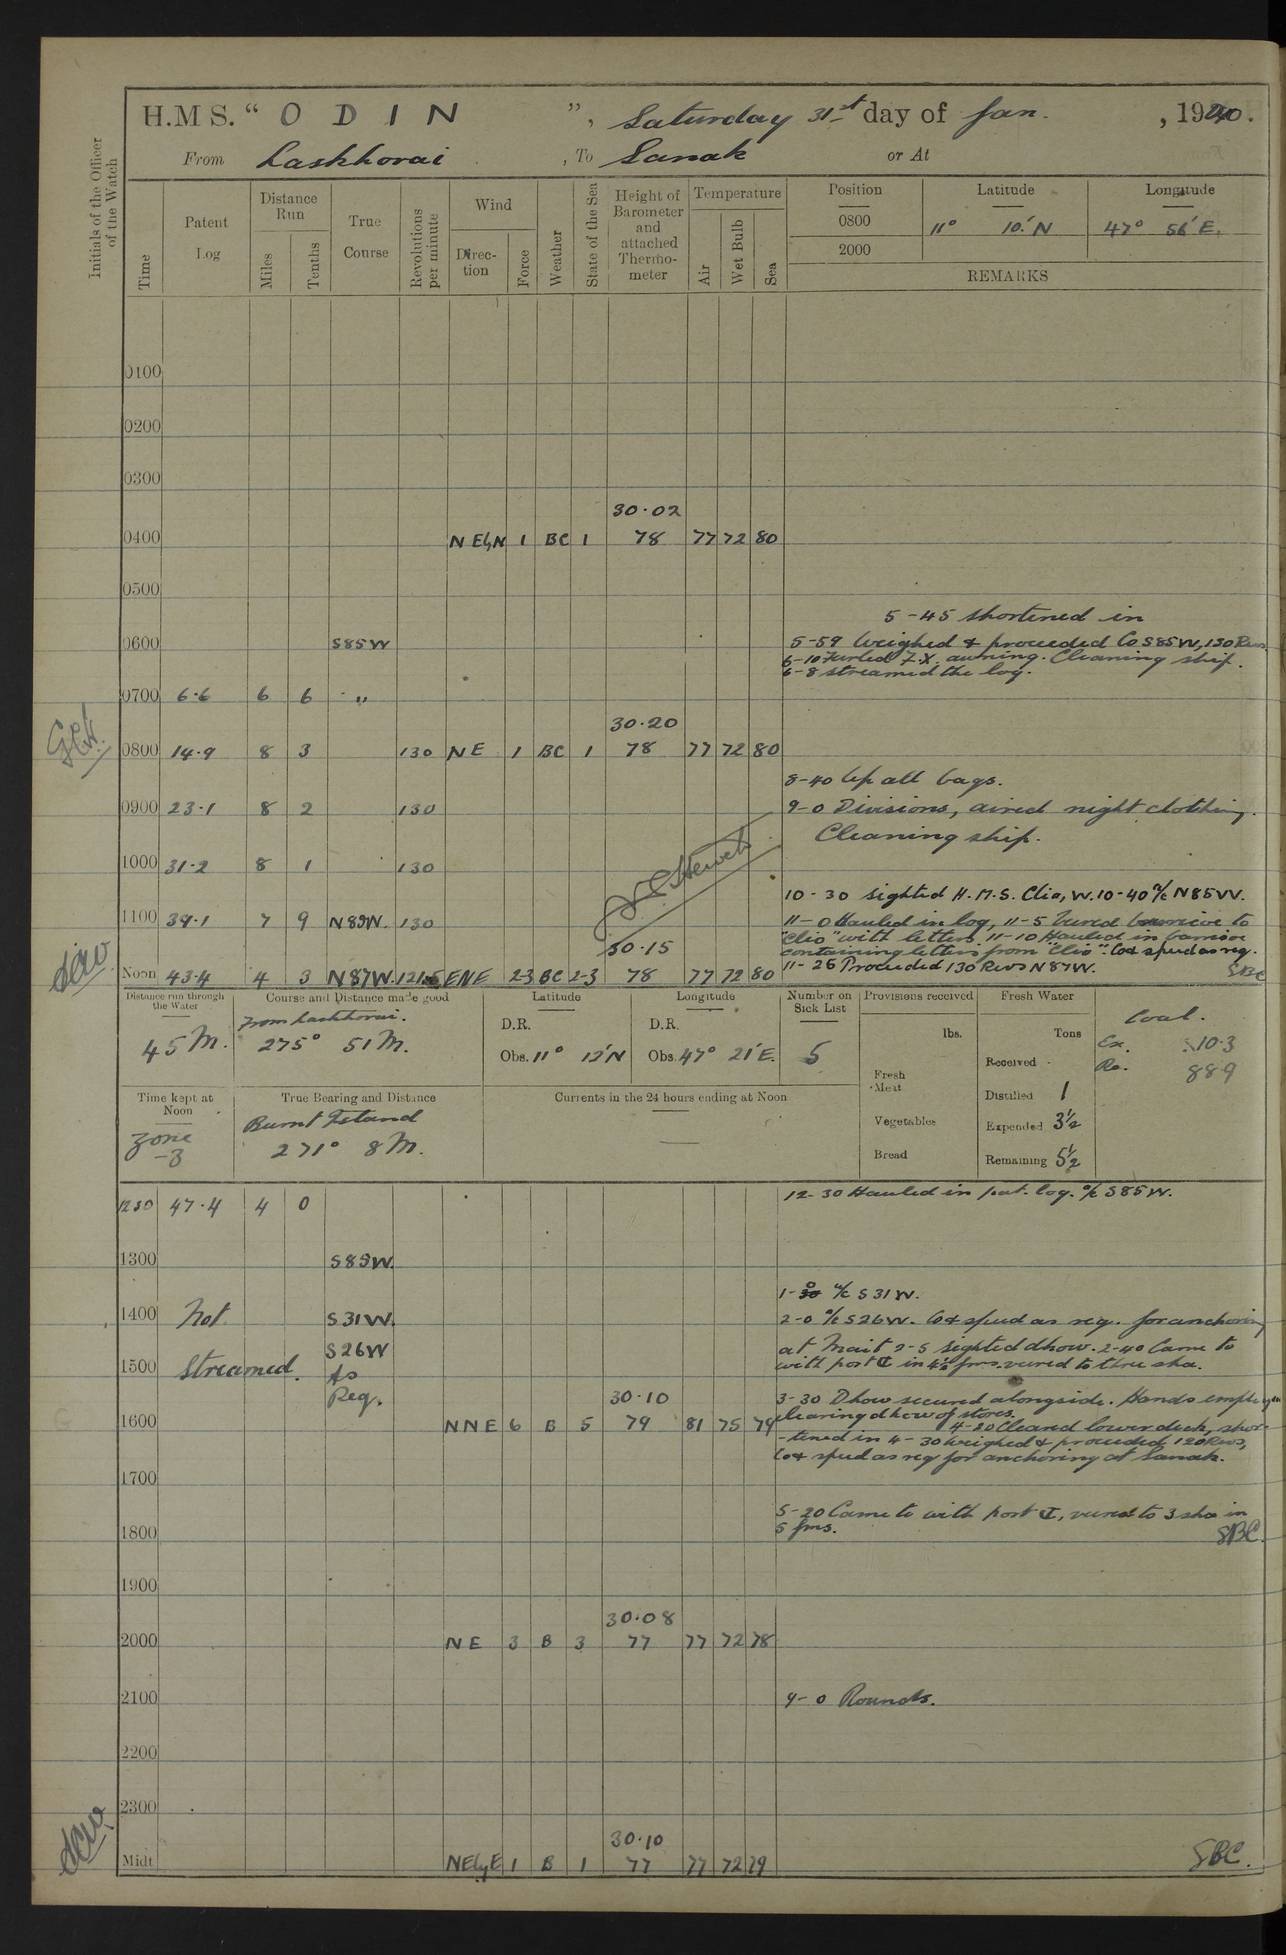 H.M S. " O D I N ", Saturday 31st day of Jan. , 1920.
From Laskhorai , To Sanak or At
Initials of the Officer of the Watch
Time
Patent Log
Distance Run
Miles
Tenths
True Course
Revolutions per minute
Wind
Direc-tion
Force
Weather
State of the Sea
Height of Barometer and attached Thermo-meter
Temperature
Air
Wet Bulb
Sea
Position Latitude Longitude
0800 11° 10.' N 47° 56' E.
2000
REMARKS
0100
0200
0300
30.02
0400 N E by N 1 BC 1 78 77 72 80
0500
5-45 shortened in
0600 S85W 5-59 Weighed & proceeded Co S85W, 130 Revs
6-10 Furled F.X. awning. Cleaning ship.
6-8 streamed the log.
0700 6.6 6 6 "
30.20
0800 14.9 8 3 130 NE 1 BC 1 78 77 72 80
8-40 Up all bags.
0900 23.1 8 2 130 9-0 Divisions, aired night clothing.
Cleaning ship.
1000 31.2 8 1 130
10-30 sighted H.M.S. Clio, W. 10-40 a/c N85W.
1100 39.1 7 9 N89W. 130 11-0 Hauled in log, 11-5 to
"Clio" with letters. 11-10 Hauled in
containing letters from "Clio". Co & speed as req.
30.15
Noon 43.4 4 3 N87W. 121.5 ENE 2-3 BC 2-3 78 77 72 80 11-25 Proceeded 130 Revs N87W. SBC
Distance run through the Water
45 M.
Course and Distance made good
From Laskhorai.
275° 51 M.
Latitude
D.R.
Obs. 11° 12' N
Longitude
D.R.
Obs. 47° 21' E.
Number on Sick List
5
Provisions received
lbs.
Fresh Meat
Vegetables
Bread
Fresh Water
Tons
Received -
Distilled 1
Expended 3½
Remaining 5½
Coal.
Ex. 10.3
Re. 889
Time kept at Noon
Zone
-3
True Bearing and Distance
Burnt Island
271° 8 M.
Currents in the 24 hours ending at Noon
1230 47.4 4 0 12-30 Hauled in pat. log. a/c S85W.
1300 S85W.
1-0 a/c S31W.
1400 Not S31W. 2-0 a/c S26W. Co & speed as req. for anchoring
S26W at Mait 2-5 sighted dhow. 2-40 Came to
1500 Streamed. As with port ⚓ in 4½ fms. veered to three sha.
Req. 30.10 3-30 Dhow secured alongside. Hands employed
1600 NNE 6 B 5 79 81 75 79 clearing dhow of stores.
4-20 Cleared lower deck, shor-
-tened in 4-30 Weighed & proceeded, 120 Revs,
Co & speed as req for anchoring at Sanak.
1700
5-20 Came to with port ⚓, veered to 3 sha in
1800 5 fms. SBC.
1900
30.08
2000 NE 3 B 3 77 77 72 78
2100 9-0 Rounds.
2200
2300
30.10
Midt NE by E 1 B 1 77 77 72 79 SBC.